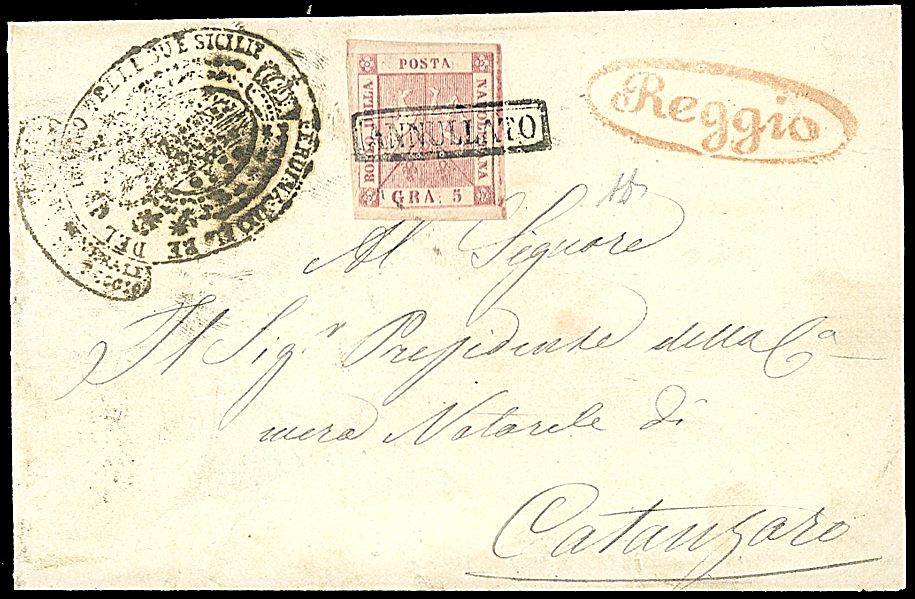 DELLE DUE SICILIE
FERDINANDO II. RE
DEL
POSTA
NAPOLETANA
BOLLO DELLA
GRA. 5
ANNULLATO
Reggio
Al Signore
Il Sigr Presidente della Ca
mera Notarile di
Catanzaro